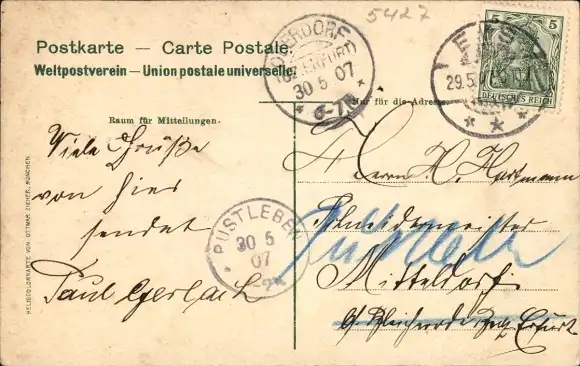 5427
Postkarte — Carte Postale.
Weltpostverein — Union postale universelle.
30 5 07
6-7N
29.5.
5 5
DEUTSCHES REICH
Raum für Mitteilungen.
Nur für die Adresse.
Viele Grüße
von hier
sendet
Paul Gerlach
PUSTLEBEN
30 5
07
Herrn H. Hartmann
Schneidermeister
Pustleben
Mitteldorf
b/ Bleicherode Bez. Erfurt
HELIOCOLORKARTE VON OTTMAR ZIEHER, MÜNCHEN.